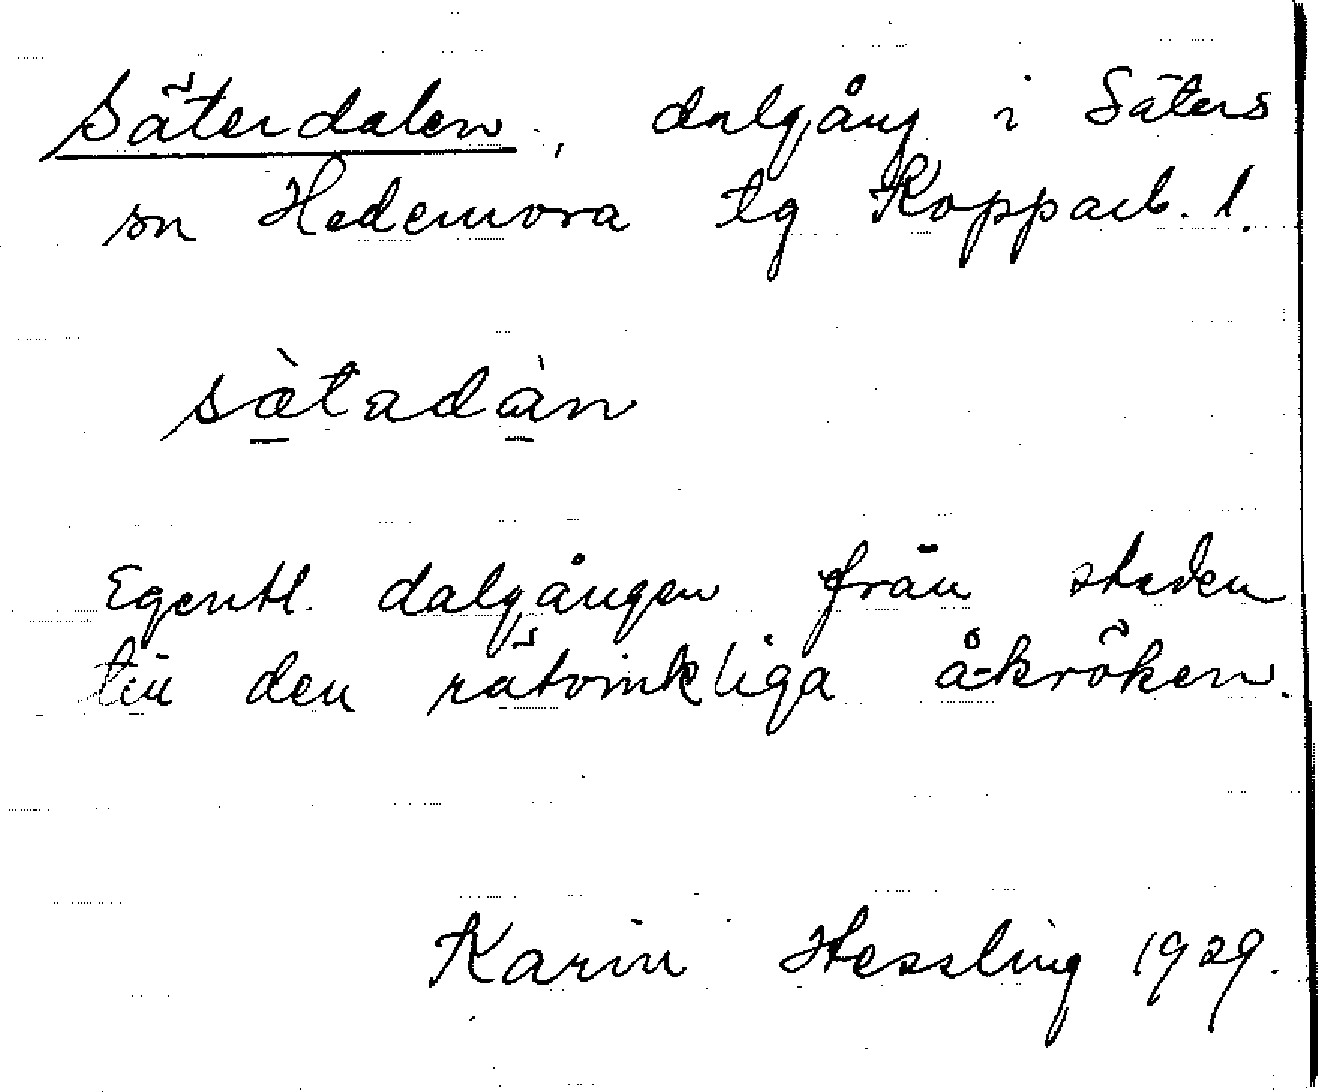 Säterdalen, dalgång i Säters
sn Hedemora tg Kopparb. l.
sàtadàn
Egentl. dalgången från staden
till den rätvinkliga åkröken.
Karin Hessling 1929.